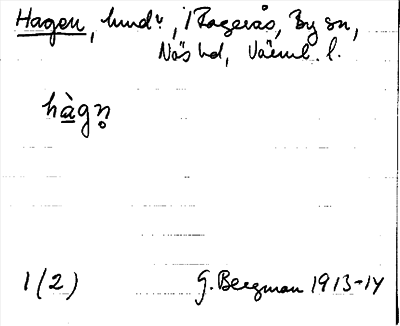 Hagen, hemdª, i Hagerås, By sn,
Näs hd, Värml. l.
hàgn̥
1(2) G. Bergman 1913-14